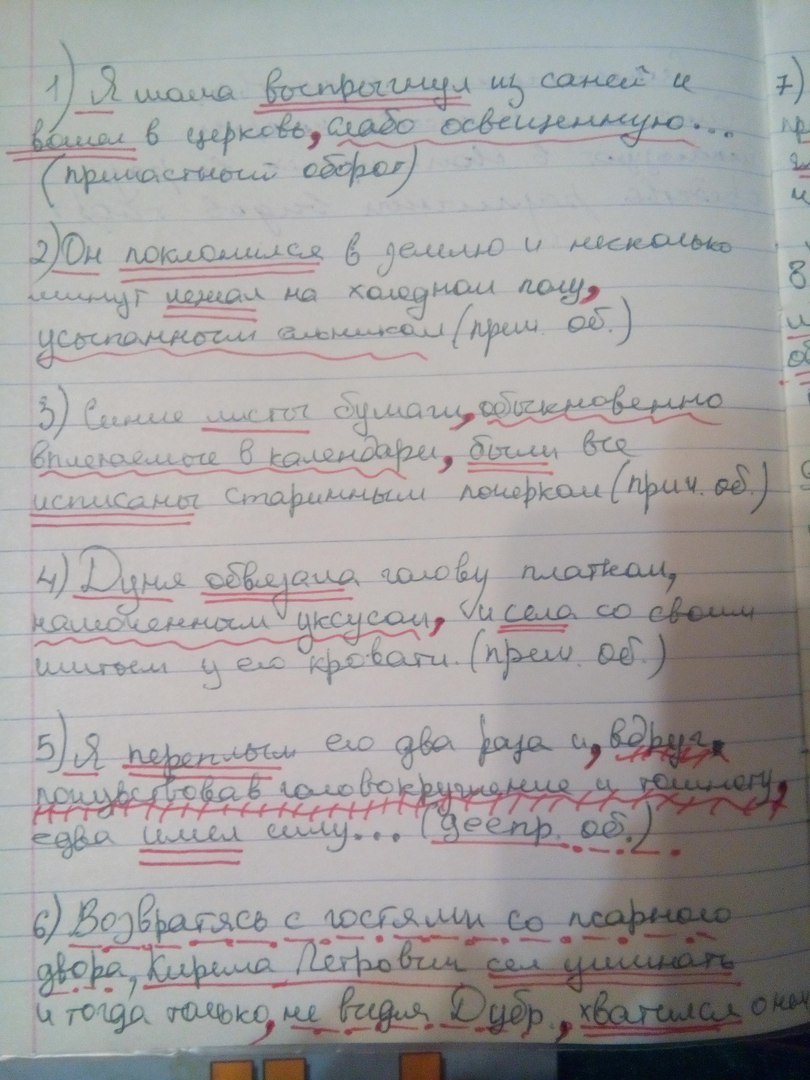 1) Я молча воспрыгнул из саней и
вошел в церковь, слабо освещенную...
(причастный оборот)
2) Он поклонился в землю и несколько
минут лежал на холодном полу,
усыпанным ельником (прич. об.)
3) Синие листы бумаги, обыкновенно
вплетаемые в календари, были все
исписаны старинным почерком (прич. об.)
4) Дуня обвязала голову платком,
намоченным уксусом, и села со своим
шитьем у его кровати. (прич. об.)
5) Я переплыл его два раза и, вдруг
почувствовав головокружение и тошноту,
едва имел силу... (деепр. об.)
6) Возвратясь с гостями со псарного
двора, Кирила Петрович сел ужинать
и тогда только, не видя Дубр., хватился о нем
7)
пр
8